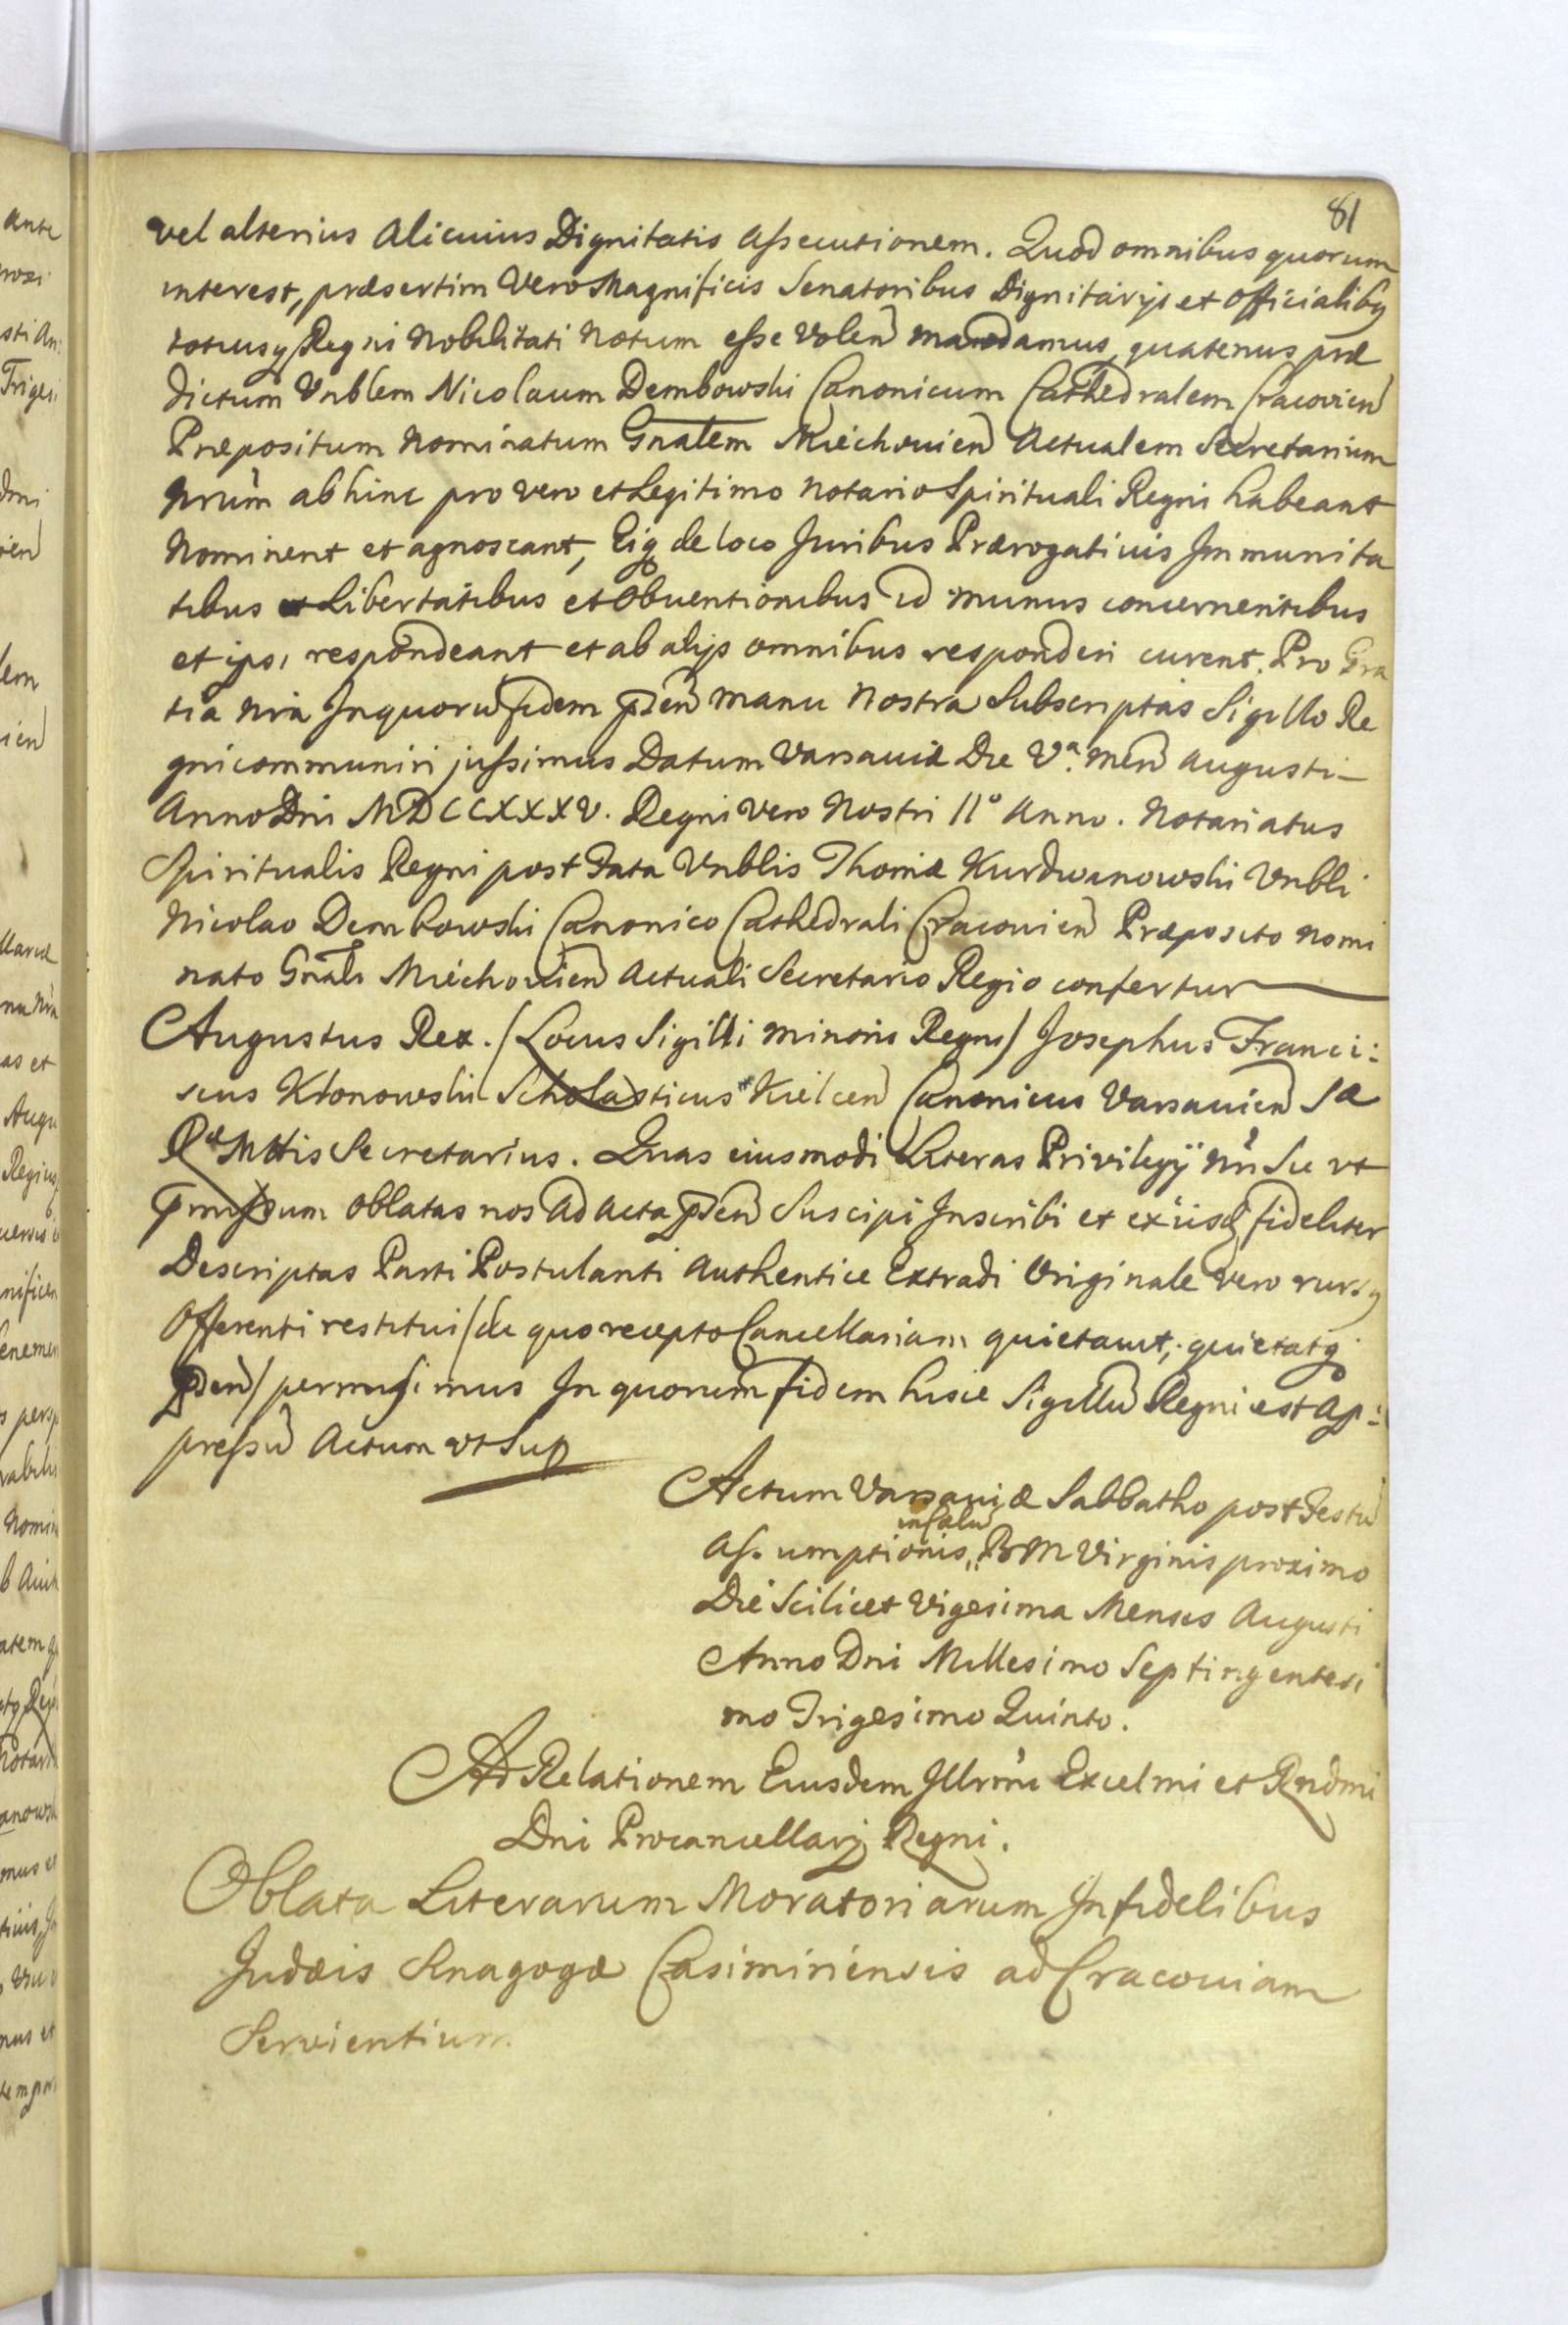 81
vel alterius Alicuius Dignitatis Assecutionem. Quod omnibus quorum
interest, præsertim Vero Magnificis Senatoribus Dignitarijs et Officialibq
totiusq Regni Nobilitati Notum esse Volen mandamus, quatenus præ
dictum Vnblem Nicolaum Dembowski Canonicum Cathedralem Cracovien
Præpositum Nominatum Gnalem Miechouien Actualem Secretarium
Nrum abhinc pro vero et Legitimo Notario Spirituali Regni habeant
Nominent et agnoscant, Eiq de loco Juribus Prærogativis Immunita
tibus et Libertatibus et Obuentionibus id munus concernentibus
et ipsi respondeant et ab alijs omnibus responderi curent. Pro Gra
tia Nra In quoru fidem pden manu Nostra Subscriptas Sigillo Re
gni communiri jussimus Datum Varsauiæ Die Va. Men Augusti
Anno Dni MDCCXXXV. Regni Vero Nostri IIo Anno. Notariatus
Spiritualis Regni post Fata Vnblis Thomæ Kurdwanowski Vnbli
Nicolao Dembowski Canonico Cathedrali Cracouien Præposito Nomi
nato Gnali Miechouien Actuali Secretario Regio confertur
Augustus Rex. /Locus Sigilli minoris Regni/ Josephus Franci:
scus Kłonowski Scholasticus Kielcen Canonicus Varsauien Sæ
Ræ Mttis Secretarius. Quas eiusmodi Literas Privilegÿ Nri Su vt
pmissum oblatas nos ad Acta pden Suscipi Inscribi et ex iisdq fideliter
Descriptas Parti Postulanti Authentice Extradi Originale Vero rursq
Offerenti restitui /de quo recepto Cancellariam quietauit, quietatq
pden/ permisimus In quorum fidem hisce Sigillu Regni est Ap:
pressu Actum vt Sup
Actum Varsauiæ Sabbatho post Festu
in Cælu
Assumptionis,, BM Virginis proximo
Die Scilicet Vigesima Mensis Augusti
Anno Dni Millesimo Septingentesi
mo Trigesimo Quinto.
Ad Relationem Eiusdem Illrmi Excelmi et Rndmi
Dni Procancellarij Regni.
Oblata Literarum Moratoriarum Infidelibus
Judæis Sinagogæ Casimiriensis ad Cracouiam
Servientium.